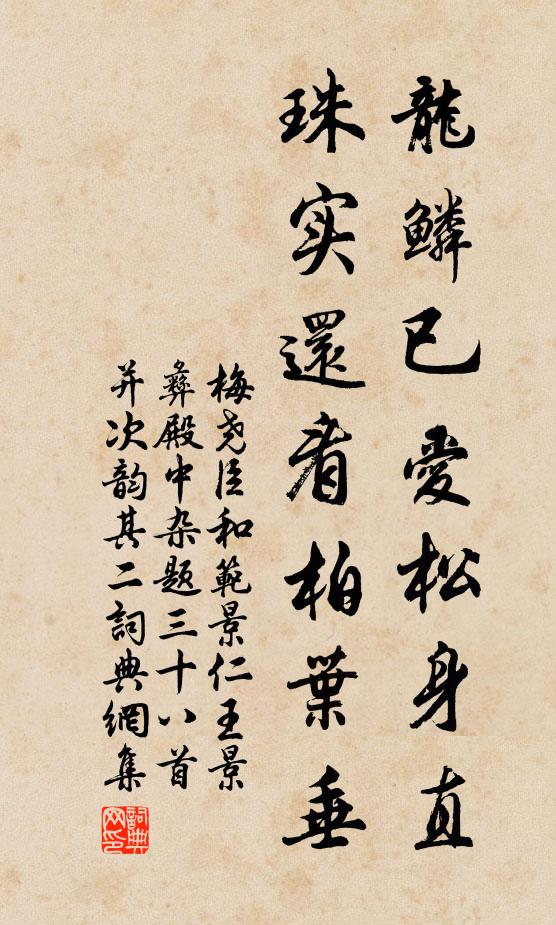 龍鱗已愛松身直
珠实還看柏葉垂
梅尧臣和範景仁王景
彜殿中杂题三十八首
并次韵其二詞典網集
詞典网印